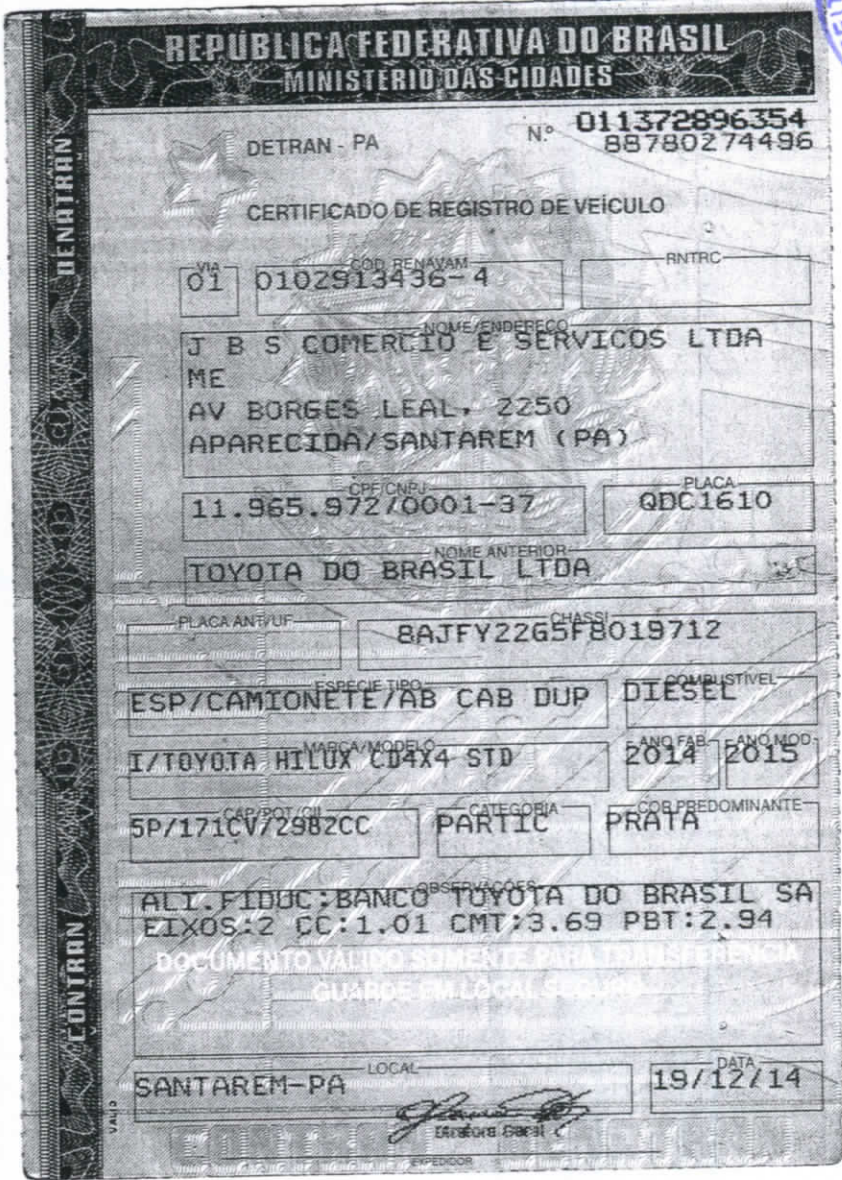 REPÚBLICA FEDERATIVA DO BRASIL
MINISTÉRIO DAS CIDADES
DENATRAN
CONTRAN
DETRAN - PA
N.º 011372896354
88780274496
CERTIFICADO DE REGISTRO DE VEÍCULO
VIA
01
CÓD. RENAVAM
0102913436-4
RNTRC
NOME/ENDEREÇO
J B S COMERCIO E SERVICOS LTDA
ME
AV BORGES LEAL, 2250
APARECIDA/SANTAREM (PA)
CPF/CNPJ
11.965.972/0001-37
PLACA
QDC1610
NOME ANTERIOR
TOYOTA DO BRASIL LTDA
PLACA ANT/UF
CHASSI
8AJFY22G5F8019712
ESPÉCIE TIPO
ESP/CAMIONETE/AB CAB DUP
COMBUSTÍVEL
DIESEL
MARCA/MODELO
I/TOYOTA HILUX CD4X4 STD
ANO FAB.
2014
ANO MOD.
2015
CAP/POT/CIL
5P/171CV/2982CC
CATEGORIA
PARTIC
COR PREDOMINANTE
PRATA
OBSERVAÇÕES
ALI.FIDUC:BANCO TOYOTA DO BRASIL SA
EIXOS:2 CC:1.01 CMT:3.69 PBT:2.94
DOCUMENTO VÁLIDO SOMENTE PARA TRANSFERÊNCIA
GUARDE EM LOCAL SEGURO
LOCAL
SANTAREM-PA
DATA
19/12/14
Diretora Geral
EXPEDIDOR
VALID